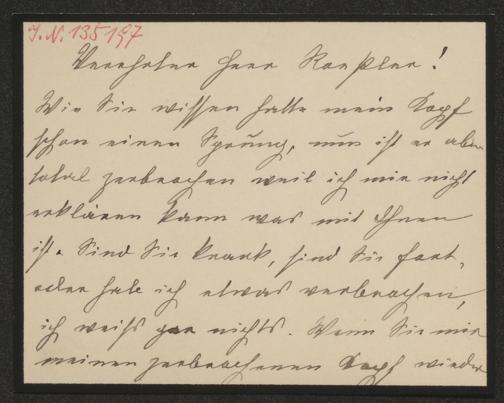 J.N. 135197
Verehrter Herr Roessler!
Wie Sie wissen hatte mein Kopf
schon einen Sprung, nun ist er aber
total zerbrochen weil ich mir nicht
erklären kann was mit Ihnen
ist. Sind Sie krank, sind Sie fort,
oder habe ich etwas verbrochen,
ich weiß gar nichts. Wenn Sie mir
meinen zerbrochenen Kopf wieder